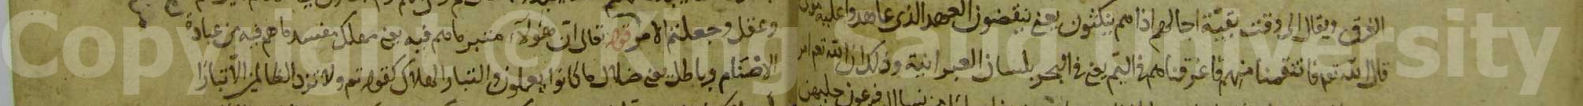 الغرق ويقال الى وقت بقية اجالهم اذا هم ينكثون يعنى ينقضون العهد الذى عاهدوا عليه موسى
قال الله تعالى فانتقمنا منهم فاغرقناهم فى اليم يعنى فى البحر بلسان العبرانية وذلك ان الله تعالى امر
وعقل وجعلتم الامر قال ان هؤلاء متبر ما هم فيه يعنى مهلك مفسد ما هم فيه من عبادة
الاصنام وباطل يعنى ضلال ما كانوا يعملون والتبار الهلاك كقوله تعالى ولا تزد الظالمين الا تبارا
Copyright © King Saud University